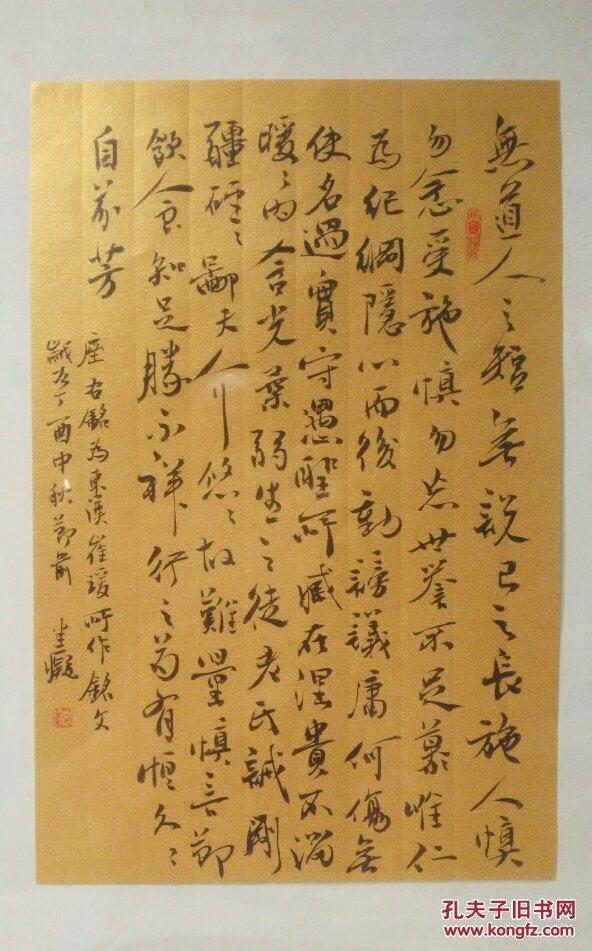 無道人之短無說己之長施人慎
勿念受施慎勿忘世譽不足慕唯仁
為紀綱隱心而後動謗議庸何傷無
使名過實守愚聖所臧在涅貴不淄
曖々內含光柔弱生之徒老氏誡剛
疆硜々鄙夫介悠々故難量慎言節
飲食知足勝不祥行之苟有恆久々
自芬芳
座右銘為東漢崔瑗所作銘文
歲次丁酉中秋節前
孔夫子旧书网
www.kongfz.com